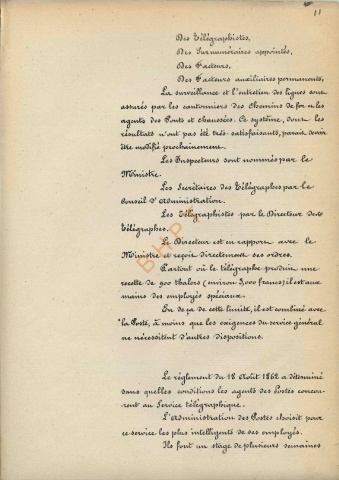 11
Des Télégraphistes,
Des Surnuméraires appointés,
Des Facteurs,
Des Facteurs auxiliaires permanents,
La surveillance et l'entretien des lignes sont
assurés par les cantonniers des chemins de fer et les
agents des Ponts et chaussées. Ce système, dont les
résultats n'ont pas été très-satisfaisants, paraît devoir
être modifié prochainement.
Les Inspecteurs sont nommés par le
Ministre.
Les Secrétaires des Télégraphes par le
Conseil d'Administration.
Les Télégraphistes par le Directeur des
Télégraphes.
Le Directeur est en rapport avec le
Ministre et reçoit directement ses ordres.
Partout où le télégraphe produit une
recette de 900 thalers (environ 3,000 francs) il est aux
mains des employés spéciaux.
En deçà de cette limite, il est combiné avec
la Poste, à moins que les exigences du service général
ne nécessitent d'autres dispositions.
Le règlement du 18 Août 1862 a déterminé
sous quelles conditions les agents des Postes concou-
rent au Service télégraphique.
L'Administration des Postes choisit pour
ce service les plus intelligents de ses employés.
Ils font un stage de plusieurs semaines